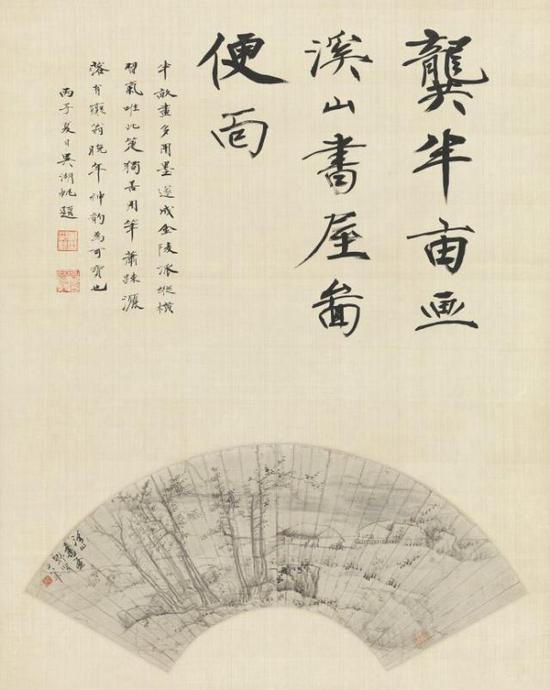 龔半亩画
溪山書屋啚
便面
半畝畫多用墨遂成金陵派縱橫
習氣唯此箑獨善用筆蕭疎灑
落有癡翁晚年神韵為可寶也
丙子夏日吳湖帆題